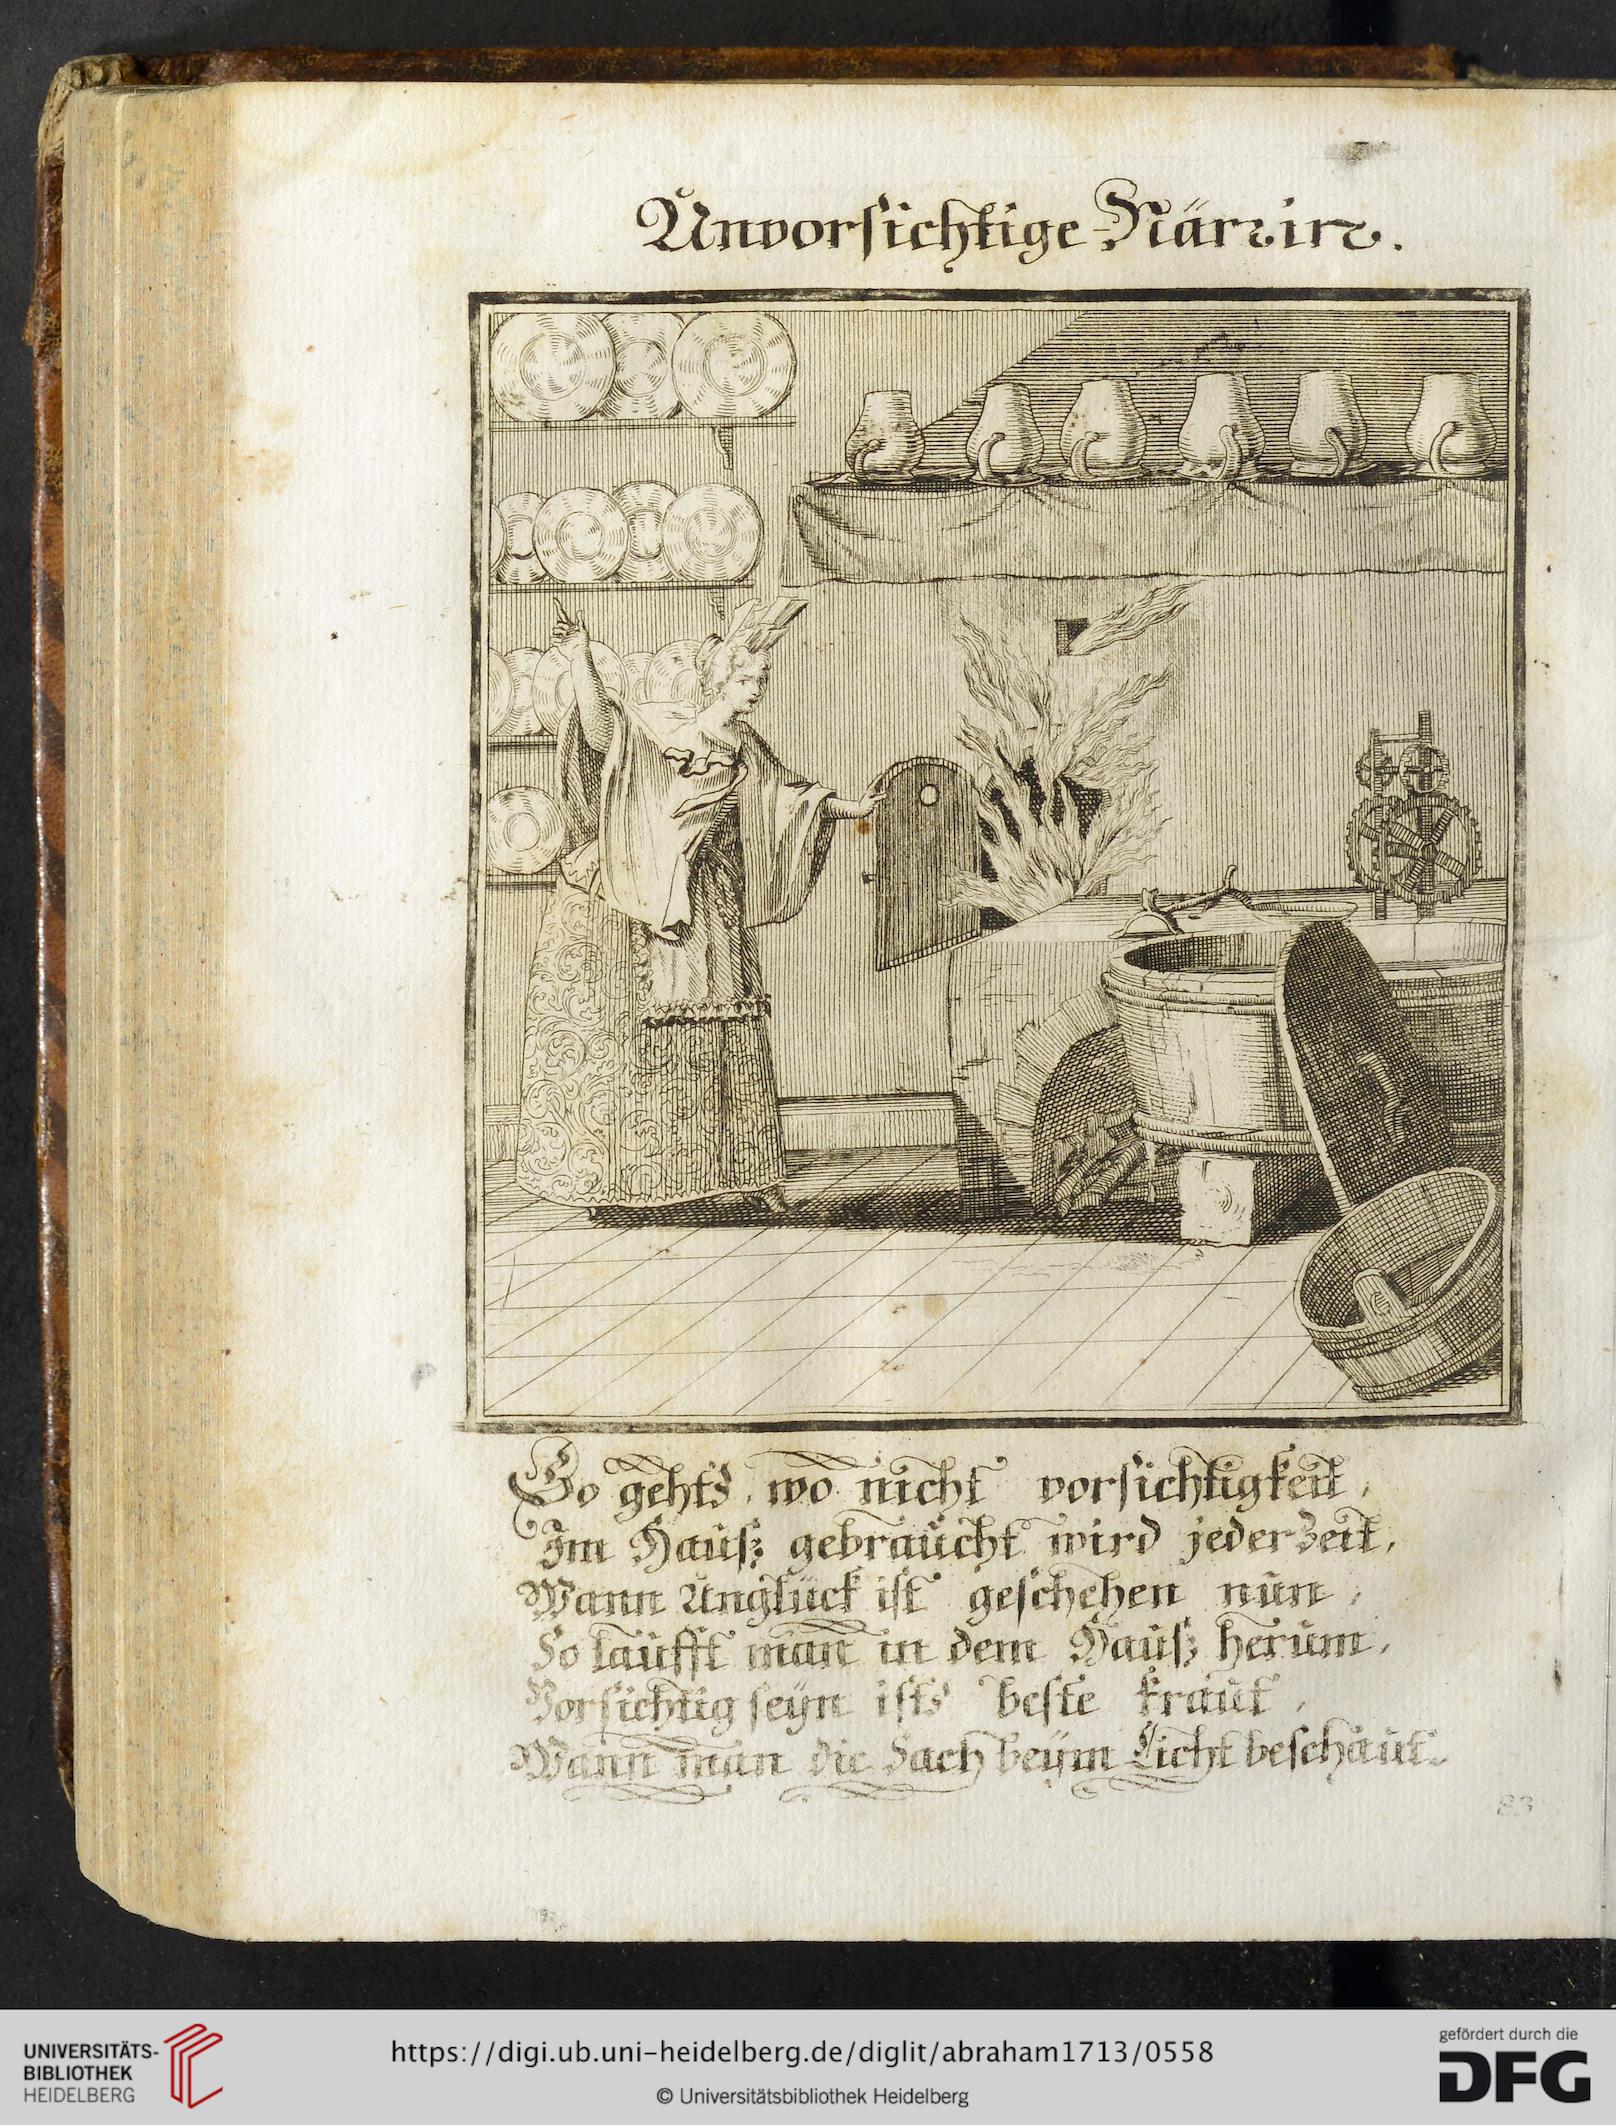 Unvorsichtige Närrin.
So gehts, wo nicht vorsichtigkeit,
Im Hauß gebraucht wird jederzeit,
Wann Unglück ist geschehen nun,
So laufft man in dem Hauß herum,
Vorsichtig seyn ists beste kraut,
Wann man die Sach beym Licht beschaut.
83
UNIVERSITÄTS-
BIBLIOTHEK
HEIDELBERG
https://digi.ub.uni-heidelberg.de/diglit/abraham1713/0558
© Universitätsbibliothek Heidelberg
gefördert durch die
DFG